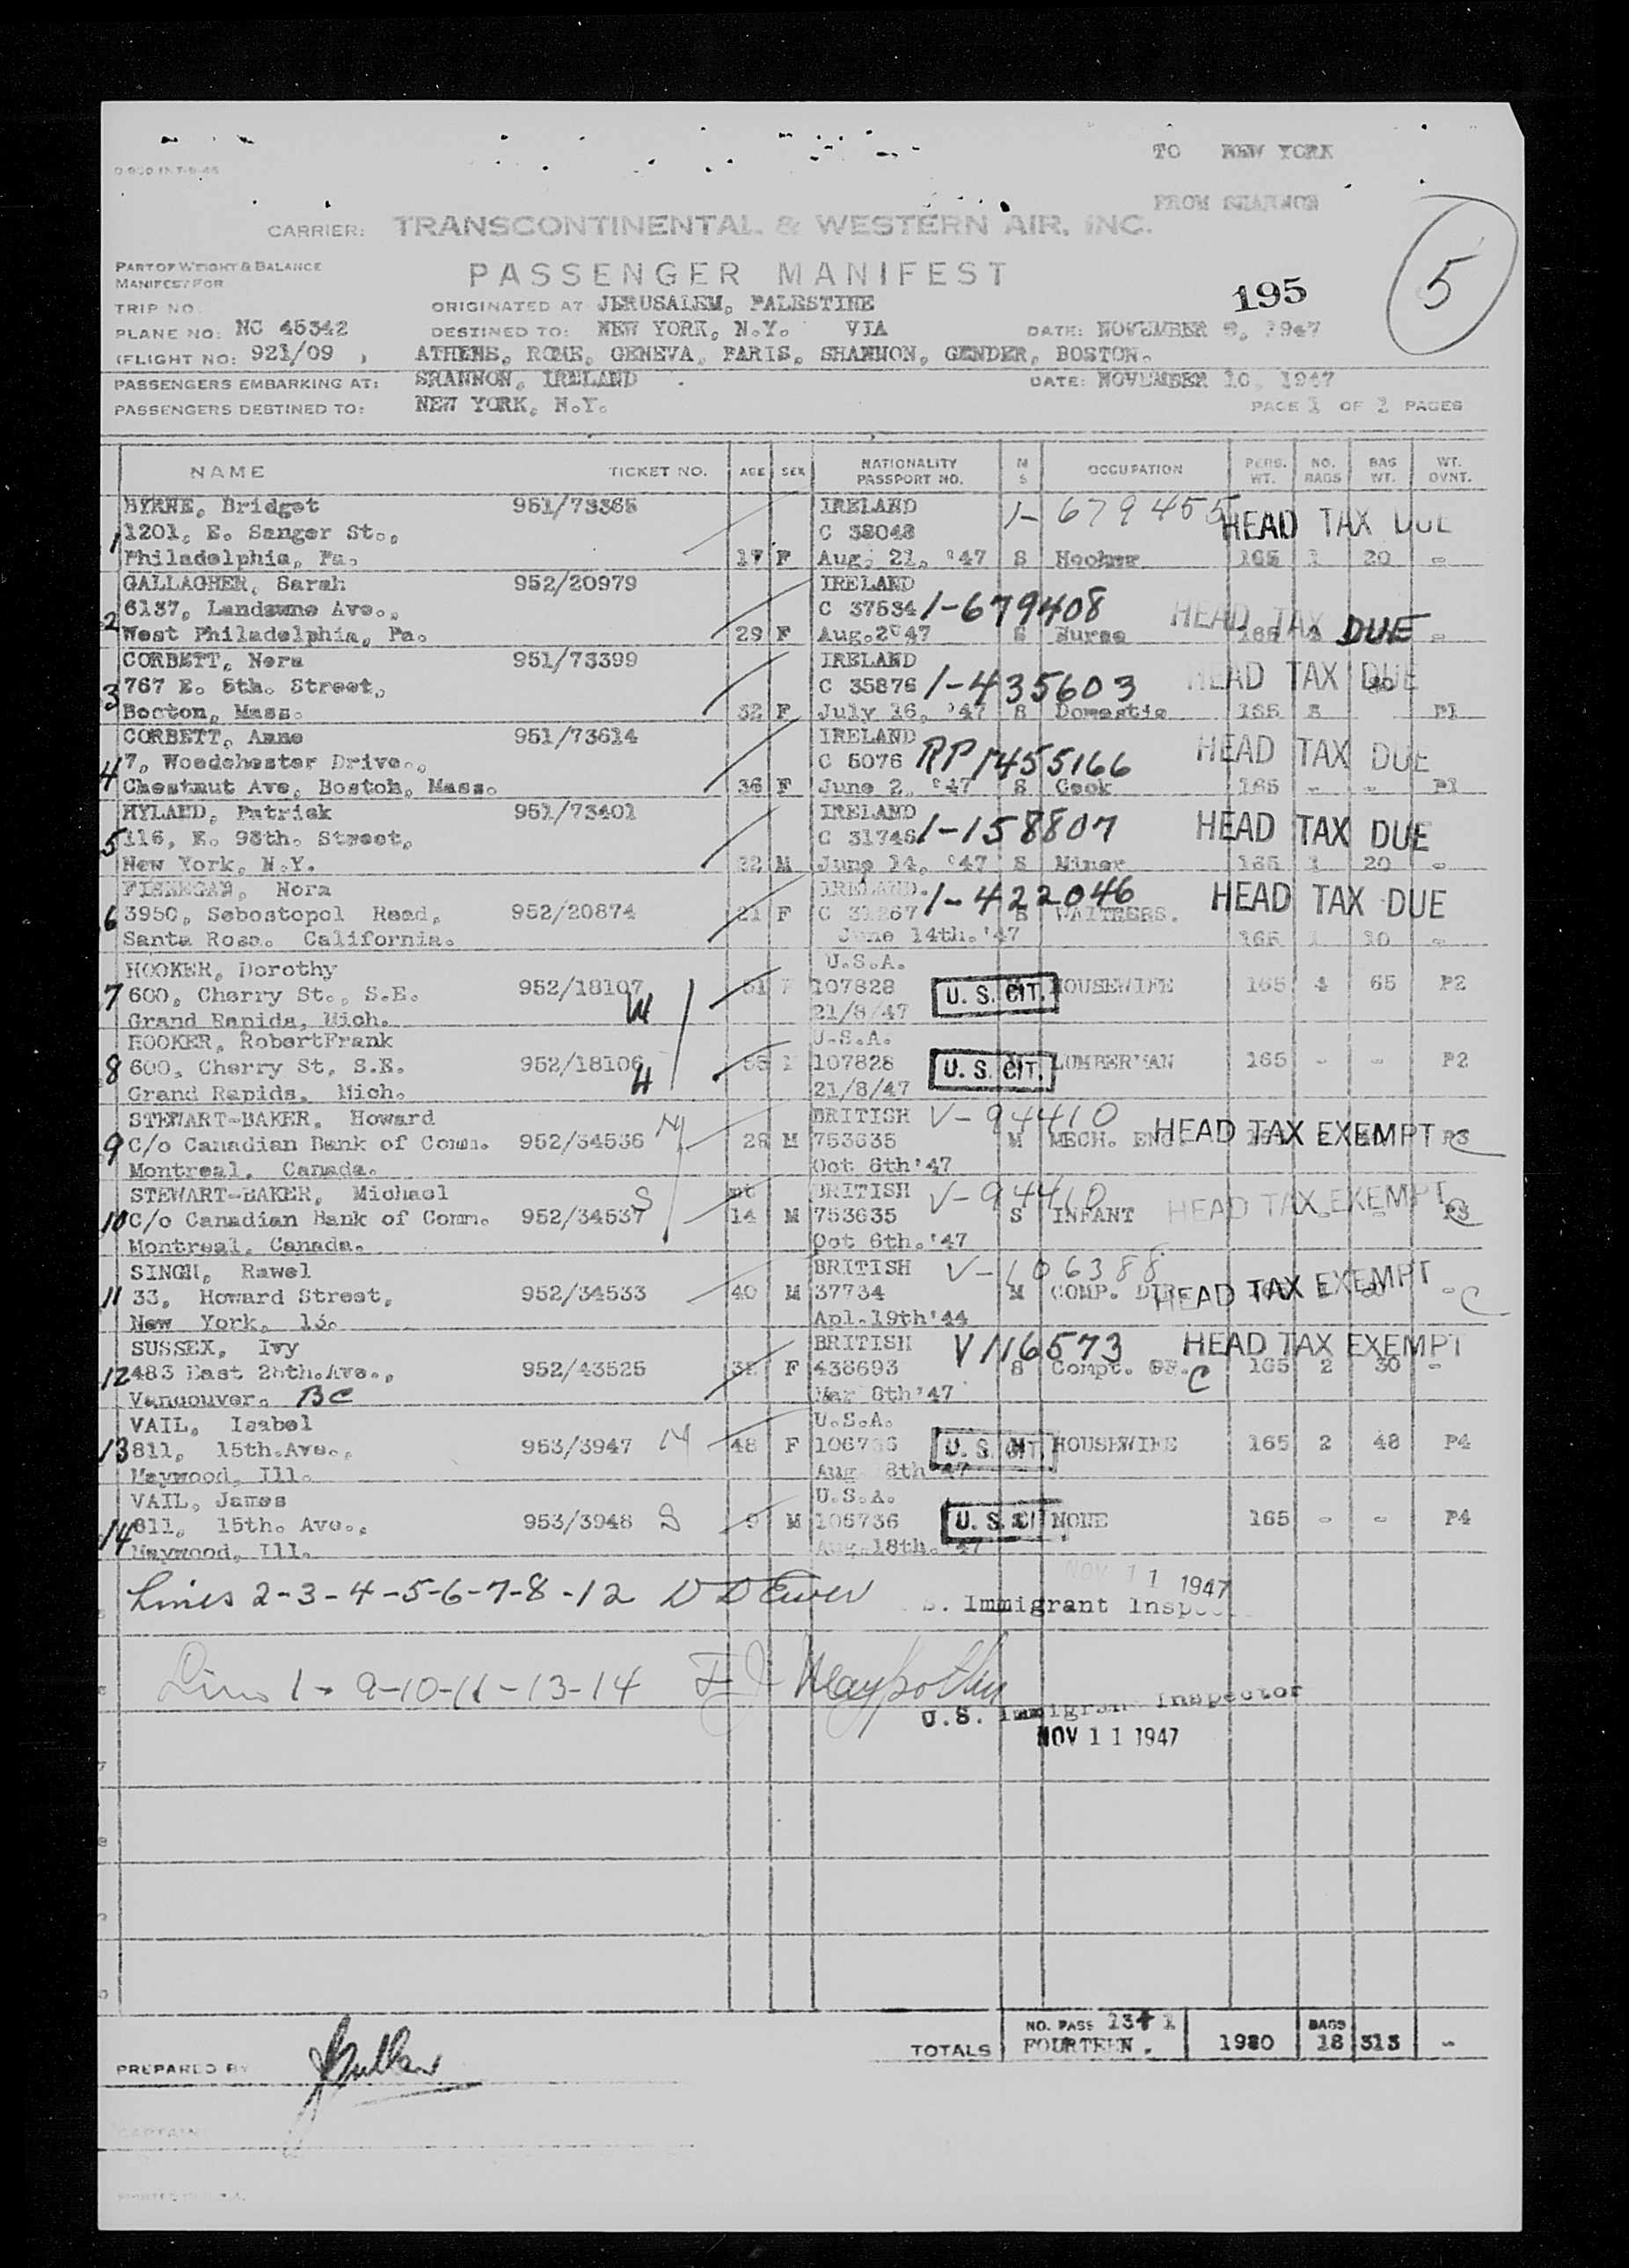 TO NEW YORK
FROM SHANNON
CARRIER: TRANSCONTINENTAL & WESTERN AIR, INC.
5
PART OF WEIGHT & BALANCE
MANIFEST FOR
PASSENGER MANIFEST
195
TRIP NO.
ORIGINATED AT JERUSALEM, PALESTINE
PLANE NO: NC 45342
DESTINED TO: NEW YORK, N.Y. VIA
DATE: NOVEMBER 1947
(FLIGHT NO: 921/09 )
ATHENS, ROME, GENEVA, PARIS, SHANNON, GENDER, BOSTON.
PASSENGERS EMBARKING AT: SHANNON, IRELAND
DATE: NOVEMBER 10, 1947
PASSENGERS DESTINED TO: NEW YORK, N.Y.
PAGE 1 OF 2 PAGES
NAME TICKET NO. AGE SEX NATIONALITY PASSPORT NO. M S OCCUPATION PERS. WT. NO. BAGS BAG WT. WT. OVNT.
BYRNE, Bridget 951/73365 IRELAND 1- 679455 HEAD TAX DUE
1 1201, E. Sanger St., C 38048
Philadelphia, Pa. 17 F Aug. 21, '47 S 165 1 20 -
GALLAGHER, Sarah 952/20979 IRELAND
2 6137, Landswne Ave., C 37534 1-679408 HEAD TAX DUE
West Philadelphia, Pa. 29 F Aug.2 '47 S Nurse 165 -
CORBETT, Nora 951/73399 IRELAND
3 767 E. 5th. Street, C 35876 1-435603 HEAD TAX DUE
Boston, Mass. 32 F July 16, '47 S Domestic 165 P1
CORBETT, Anne 951/73614 IRELAND
4 7, Woodchester Drive., C 5076 RP 1455166 HEAD TAX DUE
Chestnut Ave, Boston, Mass. 36 F June 2, '47 S Cook 165 - - P1
HYLAND, Patrick 951/73401 IRELAND
5 116, E. 98th. Street, C 31746 1-158807 HEAD TAX DUE
New York, N.Y. 32 M June 14, '47 S Miner 165 1 20 -
FINNEGAN, Nora IRELAND.
6 3950, Sebostopol Road, 952/20874 21 F C 31267 1-422046 S WAITRESS. HEAD TAX DUE
Santa Rosa. California. June 14th.'47 165 1 10 -
HOOKER, Dorothy U.S.A.
7 600, Cherry St., S.E. 952/18107 M 51 107828 U. S. CIT. HOUSEWIFE 165 4 65 P2
Grand Rapids, Mich. 21/8/47
HOOKER, RobertFrank U.S.A.
8 600, Cherry St, S.E. 952/18106 55 107828 U. S. CIT. LUMBERMAN 165 - - P2
Grand Rapids, Mich. 21/8/47
STEWART-BAKER, Howard BRITISH V-94410
9 C/o Canadian Bank of Comm. 952/34536 M 28 M 753635 M MECH. ENG. HEAD TAX EXEMPT P3
Montreal, Canada. Oct 6th'47
STEWART-BAKER, Michael S BRITISH V-94410
10 C/o Canadian Bank of Comm. 952/34537 14 M 753635 S INFANT HEAD TAX EXEMPT P3
Montreal, Canada. Oct 6th.'47
SINGH, Rawel BRITISH V-106388
11 33, Howard Street, 952/34533 40 M 37734 M COMP. DIR. HEAD TAX EXEMPT - C
New York, 13. Apl.19th'44
SUSSEX, Ivy BRITISH V1116573 HEAD TAX EXEMPT
12 483 East 28th.Ave., 952/43525 32 F 438693 S Compt. C 165 2 30 -
Vancouver. BC Mar 8th'47
VAIL, Isabel U.S.A.
13 811, 15th.Ave., 953/3947 M 48 F 106736 U. S. CIT. HOUSEWIFE 165 2 48 P4
Maywood, Ill. Aug 8th '47
VAIL, James U.S.A.
14 811, 15th. Ave., 953/3948 S 9 M 106736 U. S. CI NONE 165 - - P4
Maywood, Ill. Aug.18th. '47
NOV 11 1947
Lines 2-3-4-5-6-7-8-12 D D Ewer S. Immigrant Inspec
Line 1- 9-10-11-13-14
U.S. Immigrant Inspector
NOV 11 1947
TOTALS NO. PASS 13+1 FOURTEEN. 1980 BAGS 18 313 -
PREPARED BY
CAPTAIN